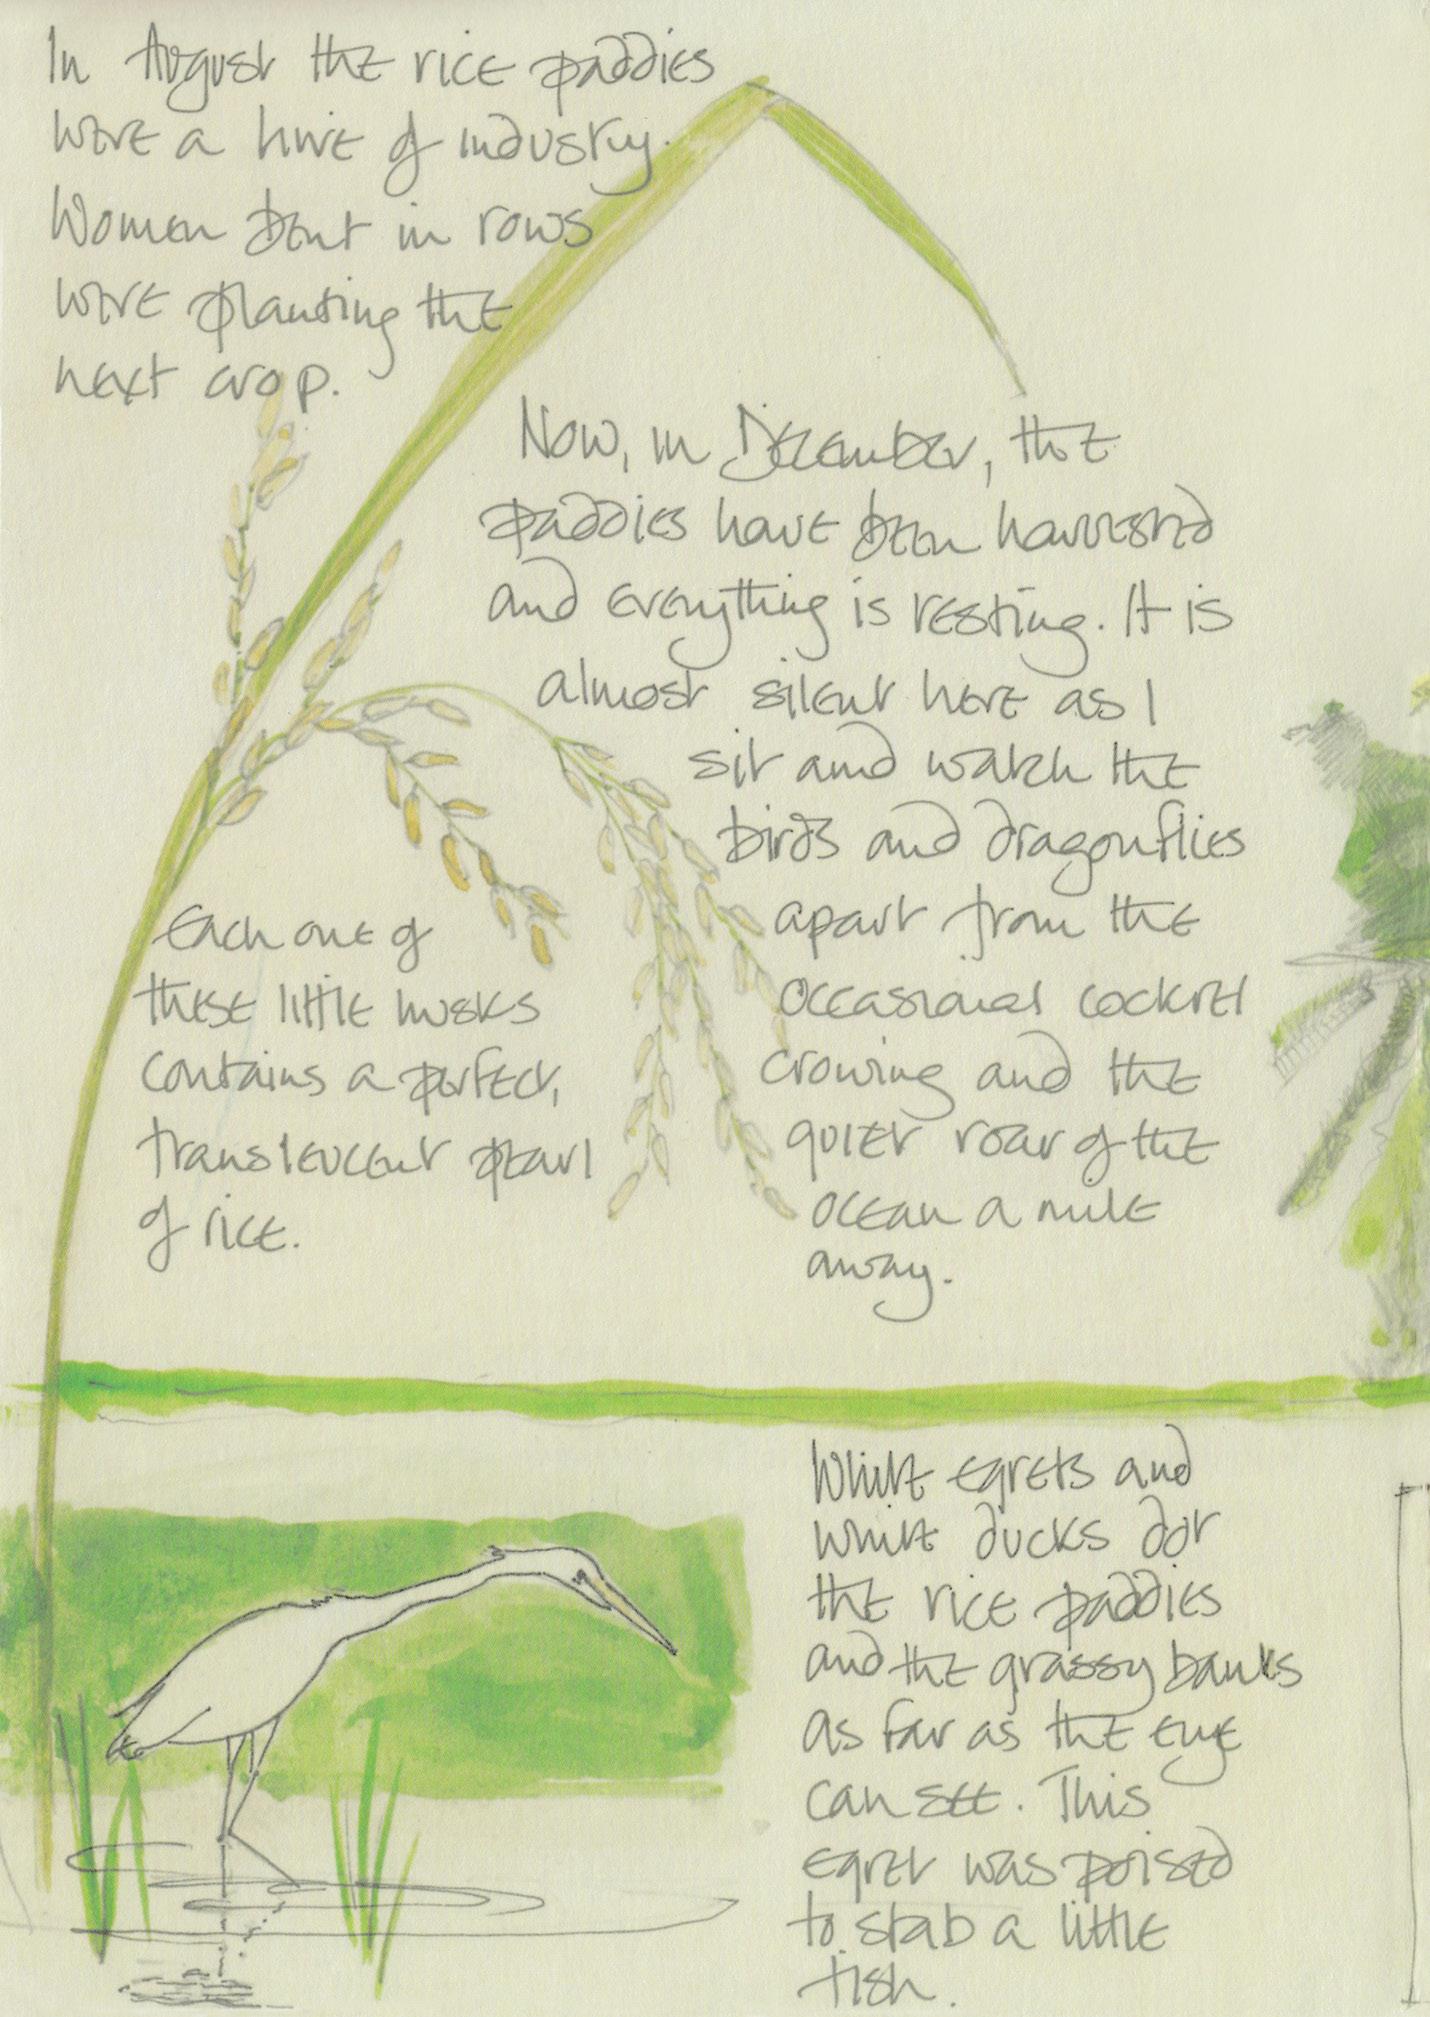 In August the rice paddies
were a hive of industry.
Women bent in rows
were planting the
next crop.
Now, in December, the
paddies have been harvested
and everything is resting. It is
almost silent here as I
sit and watch the
birds and dragonflies
apart from the
occasional cockrel
crowing and the
quiet roar of the
ocean a mile
away.
Each one of
these little husks
contains a perfect,
transleucent pearl
of rice.
White egrets and
white ducks dot
the rice paddies
and the grassy banks
as far as the eye
can see. This
egret was poised
to stab a little
fish.